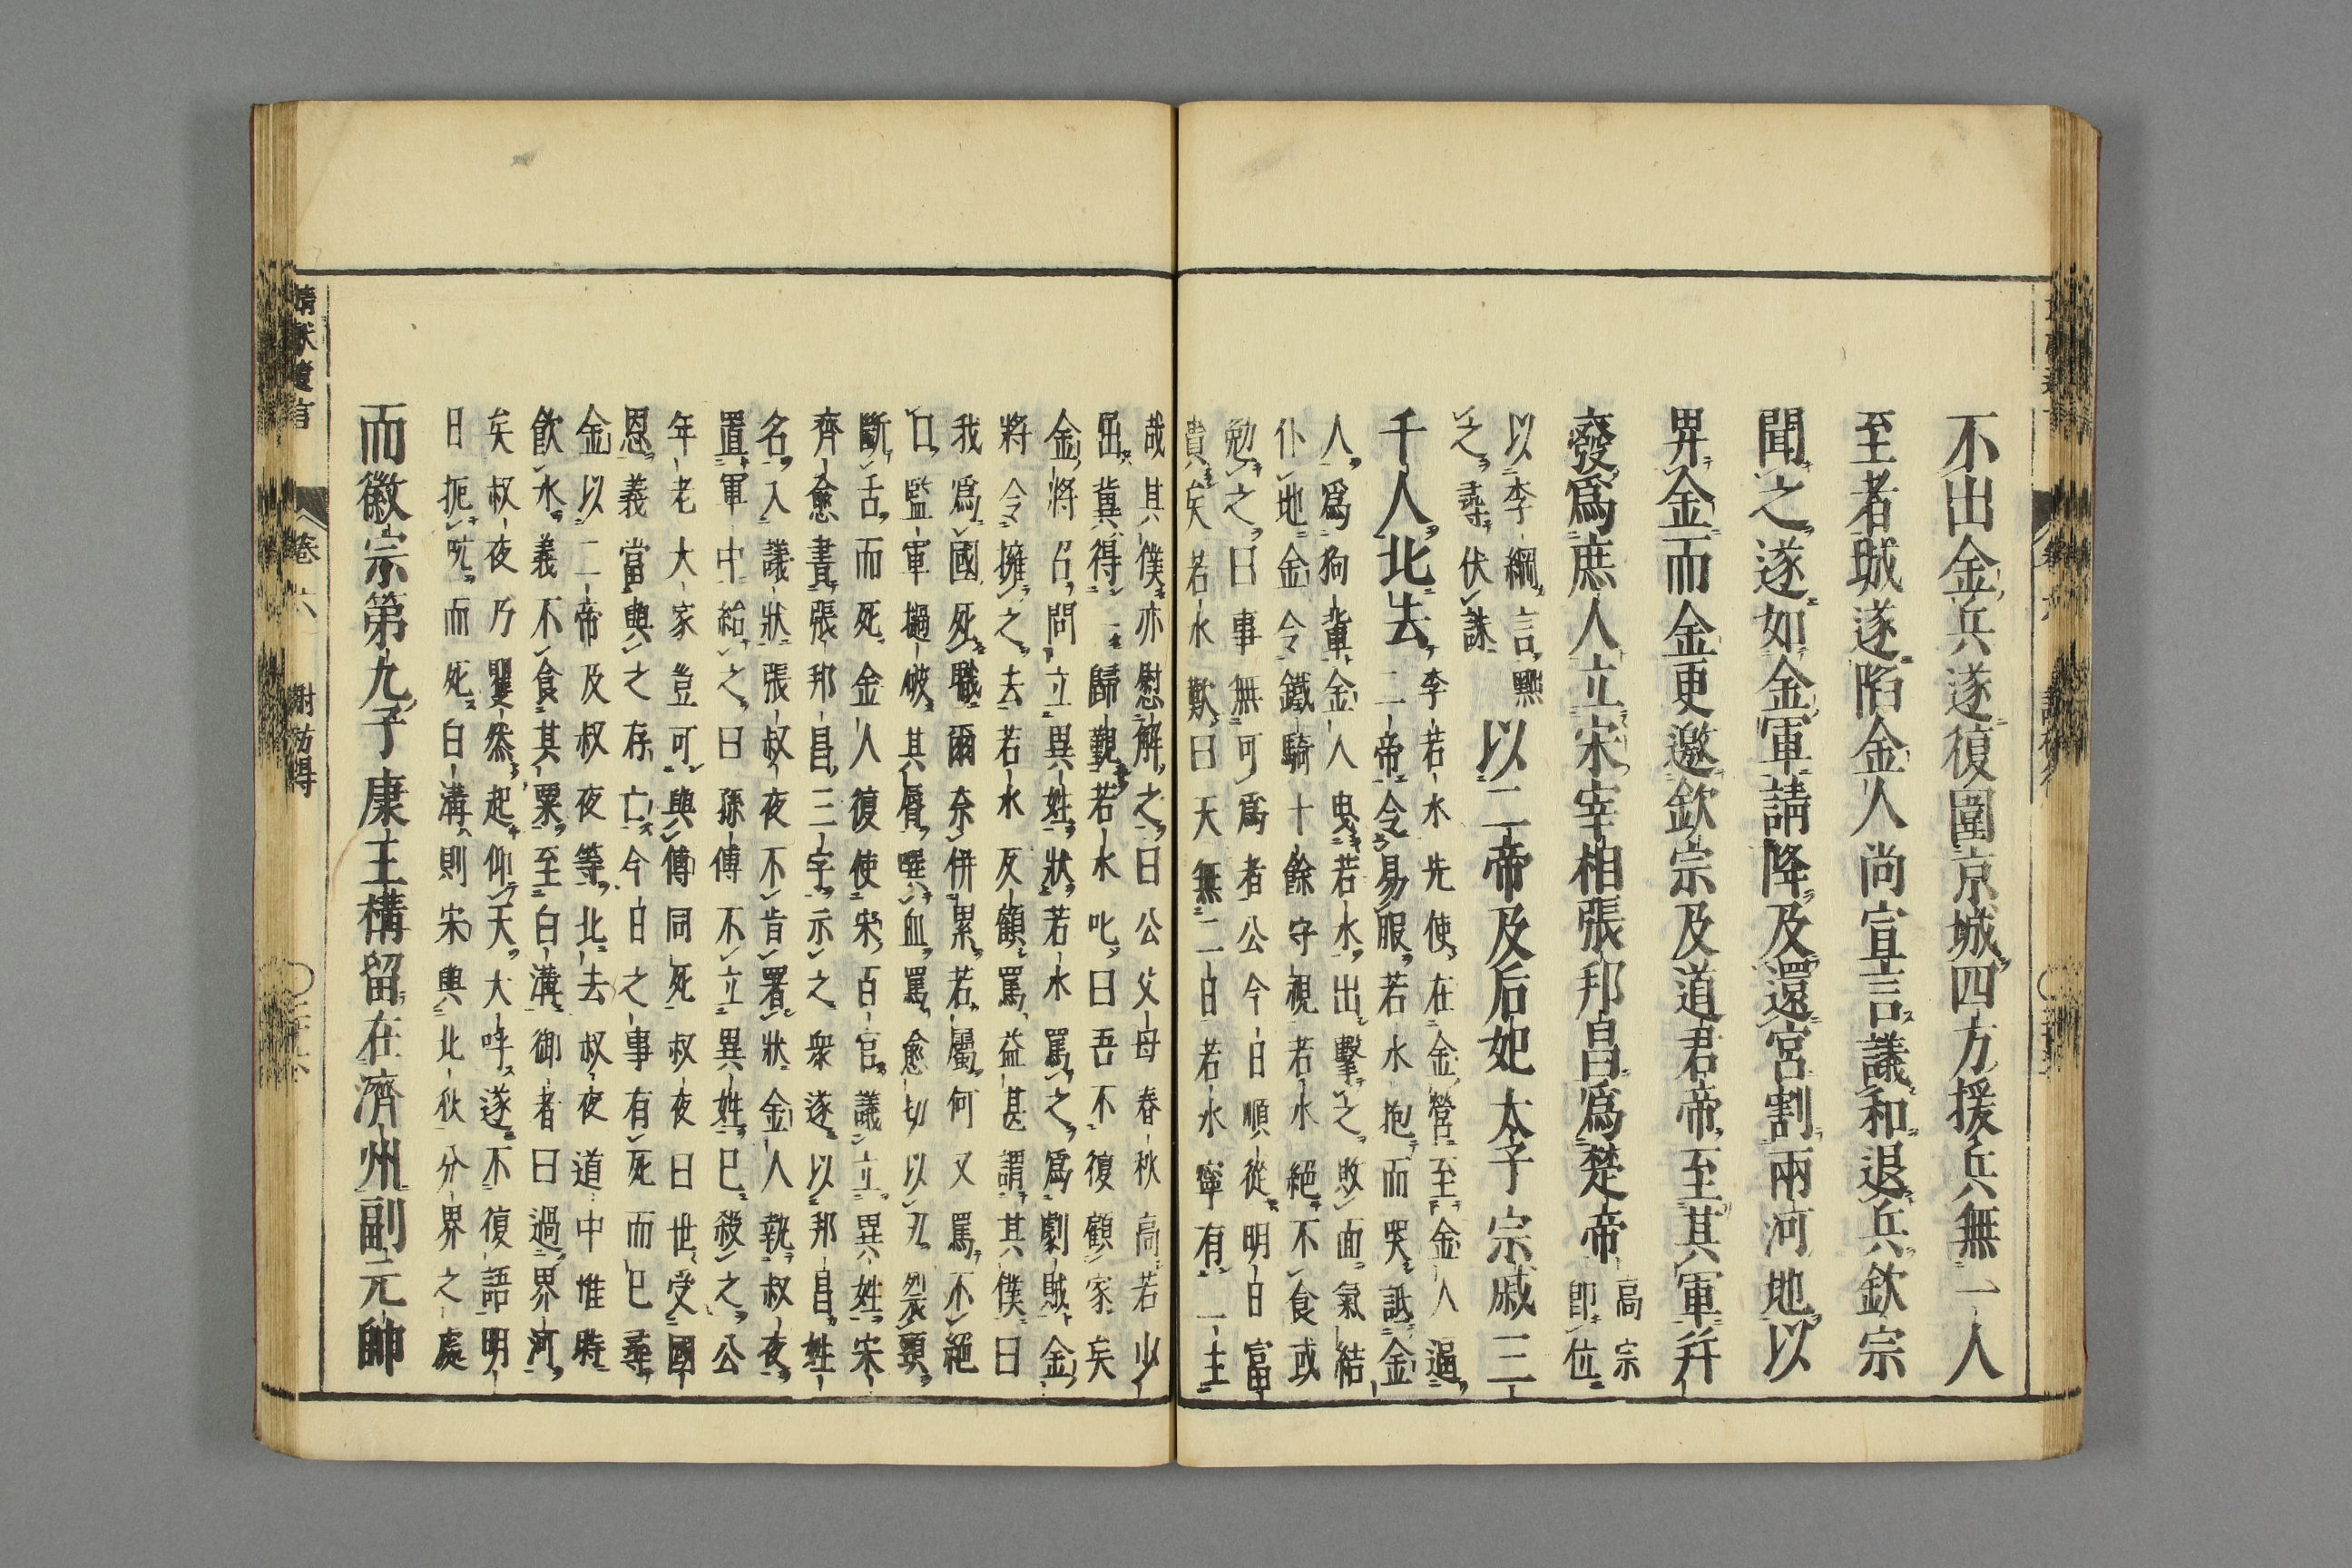 不出金兵遂復圍京城四方援兵無一人
至者城遂陷金人尚宣言議和退兵欽宗
聞之遂如金軍請降及還宮割兩河地以
畀金而金更邀欽宗及道君帝至其軍幷
發爲庶人立宋宰相張邦昌爲楚帝
高宗
即位
以李綱言黜
之尋伏誅
以二帝及后妃太子宗戚三
千人北去
李若水先使在金營至金人逼
二帝令易服若水抱而哭詆金
人爲狗輩金人曳若水出擊之敗面氣結
仆地金令鐵騎十餘守視若水絕不食或
勉之曰事無可爲者公今日順從明日富
貴矣若水歎曰天無二日若水寧有二主
哉其僕亦慰解之曰公父母春秋高若少
屈冀得一歸覲若水叱曰吾不復顧家矣
金將召問立異姓狀若水罵之爲劇賊金
將令擁之去若水反顧罵益甚謂其僕曰
我爲國死職爾奈併累若屬何又罵不絕
口監軍撾破其唇噀血罵愈切以刃裂頸
斷舌而死金人復使宋百官議立異姓宋
齊愈書張邦昌三字示之衆遂以邦昌姓
名入議狀張叔夜不肯署狀金人執叔夜
置軍中紿之曰孫傅不立異姓已殺之公
年老大家豈可與傅同死叔夜曰世受國
恩義當與之存亡今日之事有死而已尋
金以二帝及叔夜等北去叔夜道中惟時
飲水義不食其粟至白溝御者曰過界河
矣叔夜乃矍然起仰天大呼遂不復語明
日扼吭而死白溝則宋與北狄分界之處
而徽宗第九子康王構留在濟州副元帥
靖獻遺言
卷六
謝枋得